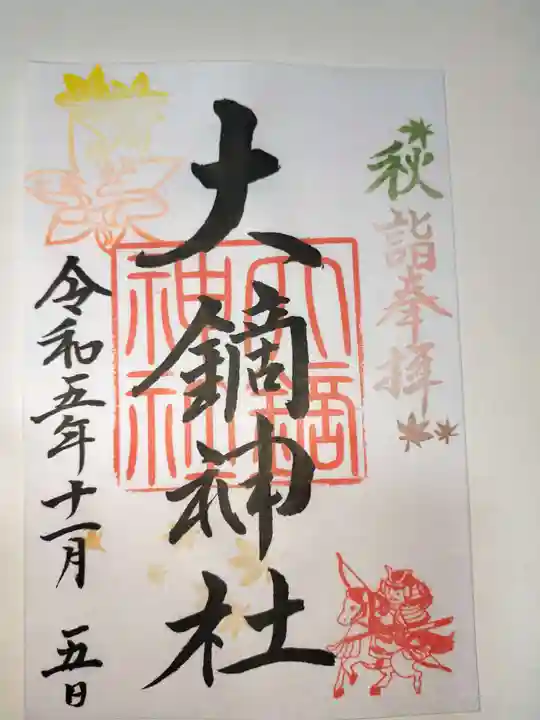 秋詣奉拝
大鏑神社
大鏑神社
令和五年十一月 五日